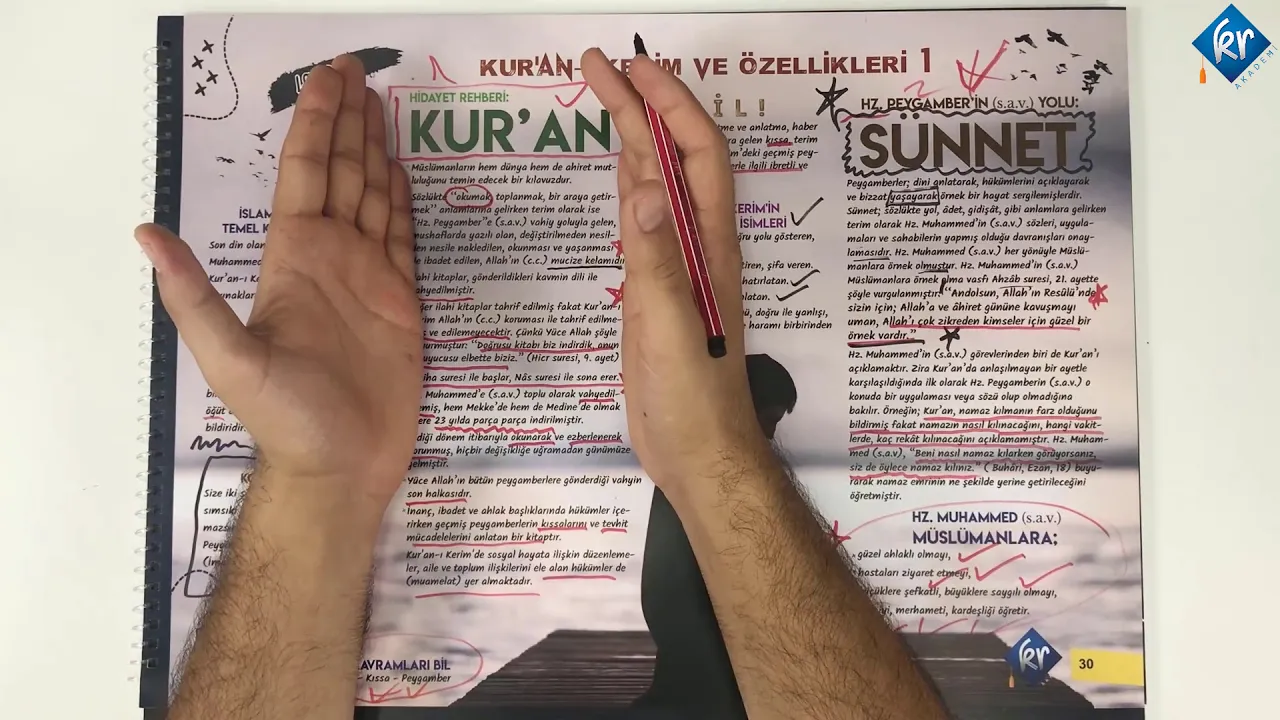 KUR'AN- KERİM VE ÖZELLİKLERİ 1
İSLAM
TEMEL K
Son din olan
Muhammed
Kur'an-ı Ke
ynaklar
öğüt
bildiri
Size iki ş
sımsık
mazsı
Peyg
(im
HİDAYET REHBERİ:
KUR'AN
Müslümanların hem dünya hem de ahiret mut-
luluğunu temin edecek bir kılavuzdur.
Sözlükte "okumak, toplanmak, bir araya getir-
mek" anlamlarına gelirken terim olarak ise
"Hz. Peygamber"e (s.a.v.) vahiy yoluyla gelen,
mushaflarda yazılı olan, değiştirilmeden nesil-
den nesile nakledilen, okunması ve yaşanması
le ibadet edilen, Allah'ın (c.c.) mucize kelamıdı
lahi kitaplar, gönderildikleri kavmin dili ile
ahyedilmiştir.
ğer ilahi kitaplar tahrif edilmiş fakat Kur'an-ı
rim Allah'ın (c.c.) koruması ile tahrif edilme-
ş ve edilemeyecektir. Çünkü Yüce Allah şöyle
urmuştur: "Doğrusu kitabı biz indirdik, onun
uyucusu elbette biziz." (Hicr suresi, 9. ayet)
iha suresi ile başlar, Nâs suresi ile sona erer.
Muhammed'e (s.a.v.) toplu olarak vahyedil-
emiş, hem Mekke'de hem de Medine'de olmak
ere 23 yılda parça parça indirilmiştir.
diği dönem itibarıyla okunarak ve ezberlenerek
orunmuş, hiçbir değişikliğe uğramadan günümüze
gelmiştir.
Yüce Allah'ın bütün peygamberlere gönderdiği vahyin
son halkasıdır.
İnanç, ibadet ve ahlak başlıklarında hükümler içe-
rirken geçmiş peygamberlerin kıssalarını ve tevhit
mücadelelerini anlatan bir kitaptır.
Kur'an-ı Kerim'de sosyal hayata ilişkin düzenleme-
ler, aile ve toplum ilişkilerini ele alan hükümler de
(muamelat) yer almaktadır.
AVRAMLARI BİL
- Kıssa - Peygamber
İ L !
tme ve anlatma, haber
ra gelen kıssa, terim
m'deki geçmiş pey-
erle ilgili ibretli ve
KERİM'İN
İSİMLERİ
ğru yolu gösteren,
tiren, şifa veren.
hatırlatan.
nlatan.
nü, doğru ile yanlışı,
e haramı birbirinden
HZ. PEYGAMBER'İN (s.a.v.) YOLU:
SÜNNET
Peygamberler; dini anlatarak, hükümlerini açıklayarak
ve bizzat yaşayarak örnek bir hayat sergilemişlerdir.
Sünnet; sözlükte yol, âdet, gidişât, gibi anlamlara gelirken
terim olarak Hz. Muhammed'in (s.a.v.) sözleri, uygula-
maları ve sahabilerin yapmış olduğu davranışları onay-
lamasıdır. Hz. Muhammed (s.a.v.) her yönüyle Müslü-
manlara örnek olmuştur. Hz. Muhammed'in (s.a.v.)
Müslümanlara örnek olma vasfı Ahzâb suresi, 21. ayette
şöyle vurgulanmıştır: "Andolsun, Allah'ın Resûlü'nde
sizin için; Allah'a ve âhiret gününe kavuşmayı
uman, Allah'ı çok zikreden kimseler için güzel bir
örnek vardır."
Hz. Muhammed'in (s.a.v.) görevlerinden biri de Kur'an'ı
açıklamaktır. Zira Kur'an'da anlaşılmayan bir ayetle
karşılaşıldığında ilk olarak Hz. Peygamberin (s.a.v.) o
konuda bir uygulaması veya sözü olup olmadığına
bakılır. Örneğin; Kur'an, namaz kılmanın farz olduğunu
bildirmiş fakat namazın nasıl kılınacağını, hangi vakit-
lerde, kaç rekât kılınacağını açıklamamıştır. Hz. Muham-
med (s.a.v), "Beni nasıl namaz kılarken görüyorsanız,
siz de öylece namaz kılınız." ( Buhâri, Ezan, 18) buyu-
rarak namaz emrinin ne şekilde yerine getirileceğini
öğretmiştir.
HZ. MUHAMMED (s.a.v.)
MÜSLÜMANLARA;
güzel ahlaklı olmayı,
hastaları ziyaret etmeyi,
küçüklere şefkatli, büyüklere saygılı olmayı,
yi, merhameti, kardeşliği öğretir.
kr
30
kr
AKADEMİ